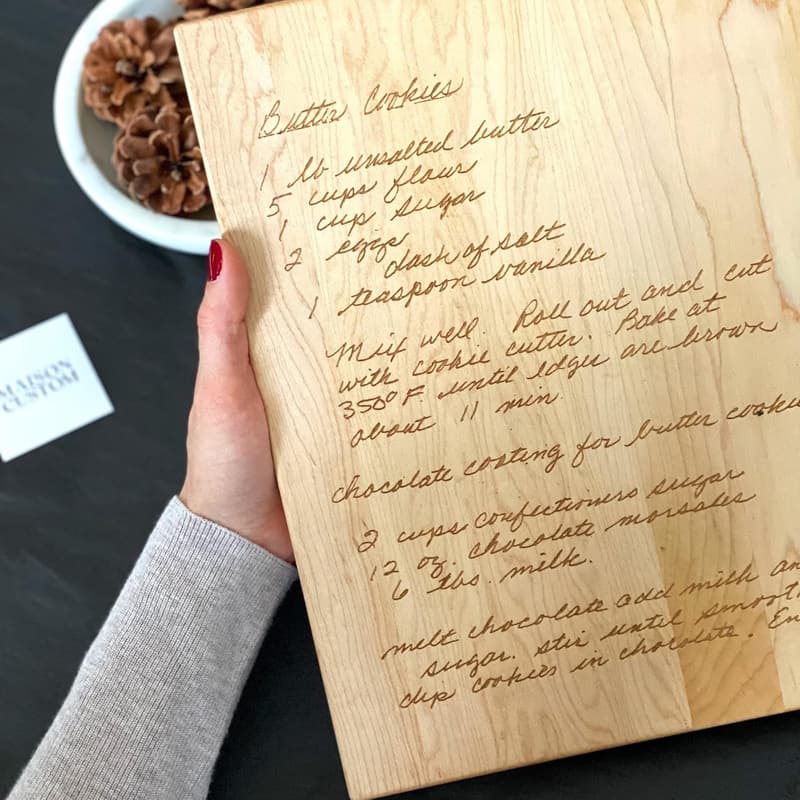 Butter Cookies
1 lb unsalted butter
5 cups flour
1 cup sugar
2 eggs
dash of salt
1 teaspoon vanilla
Mix well. Roll out and cut
with cookie cutter. Bake at
350° F. until edges are brown
about 11 min.
chocolate coating for butter cookie
2 cups confectioners sugar
12 oz. chocolate morsales
6 tbs. milk.
melt chocolate add milk an
sugar. stir until smoot
dip cookies in chocolate. En
MAISON
CUSTOM